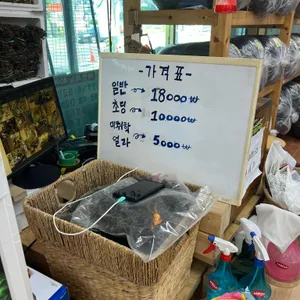 -가격표-
일반 → 18000₩
초딩 → 10000₩
미취학 → 5000₩
얼라